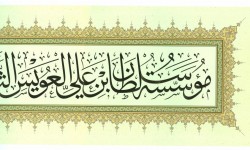 مؤسسة سلطان بن علي العويس